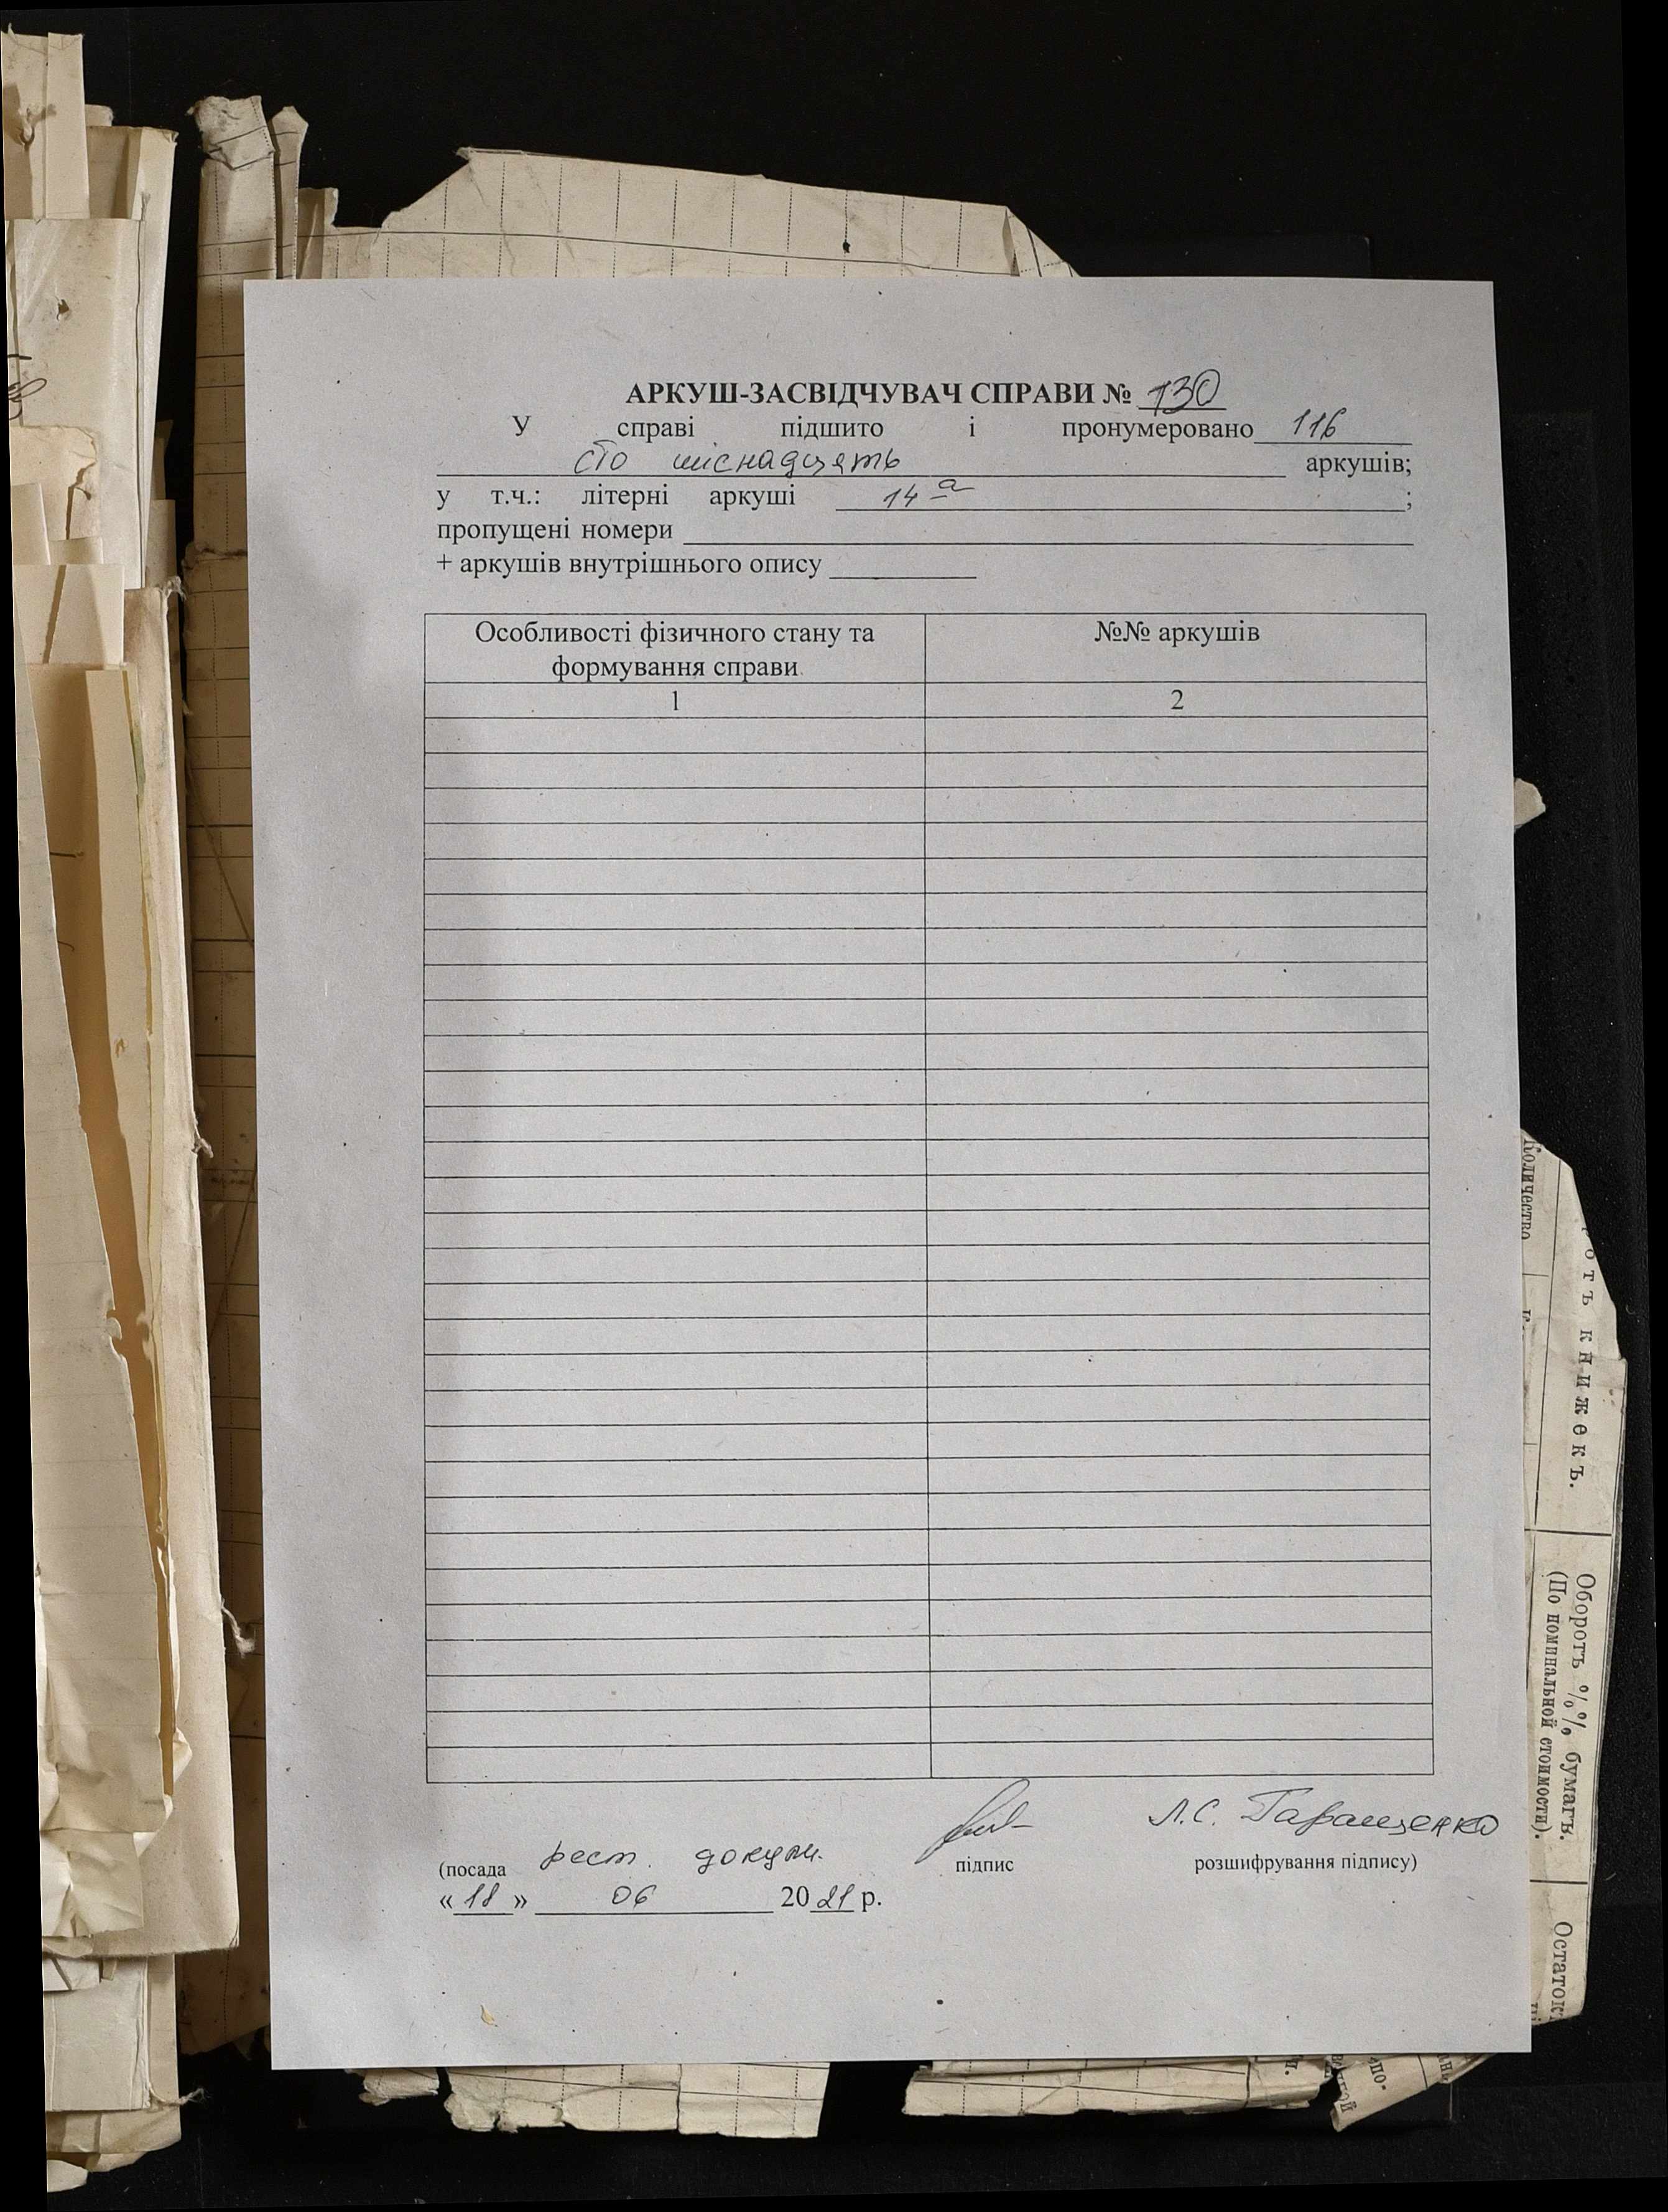 АРКУШ-ЗАСВІДЧУВАЧ СПРАВИ № 130
У справі підшито і пронумеровано 116
сто шіснадцять аркушів;
у т.ч.: літерні аркуші 14 а ;
пропущені номери
+ аркушів внутрішнього опису
Особливості фізичного стану та формування справи
№№ аркушів
1
2
рест. докум.
Л.С. Гаращенко
(посада
підпис
розшифрування підпису)
« 18 » 06 20 21 р.
Количество
отъ книжекъ.
Оборотъ %% бумагъ.
(По номинальной стоимости).
Остаток